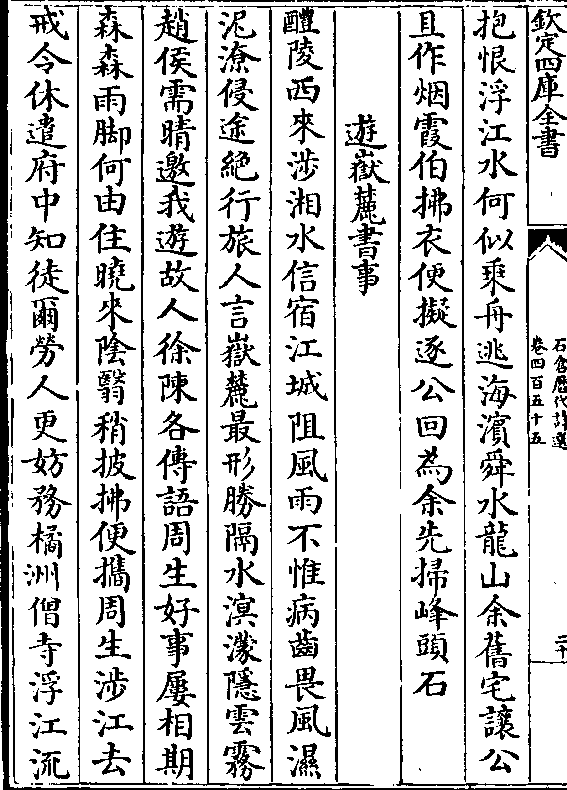 欽定四庫全書
石倉歷代詩選
卷四百五十五
二十
抱恨浮江水何似乘舟逃海濱舜水龍山余舊宅讓公
且作烟霞伯拂衣便擬逐公回為余先掃峰頭石
遊嶽麓書事
醴陵西來涉湘水信宿江城阻風雨不惟病齒畏風濕
泥潦侵途絶行旅人言嶽麓最形勝隔水溟濛隱雲霧
趙侯需晴邀我遊故人徐陳各傳語周生好事屢相期
森森雨脚何由住曉來陰翳稍披拂便攜周生涉江去
戒令休遣府中知徒爾勞人更妨務橘洲僧寺浮江流